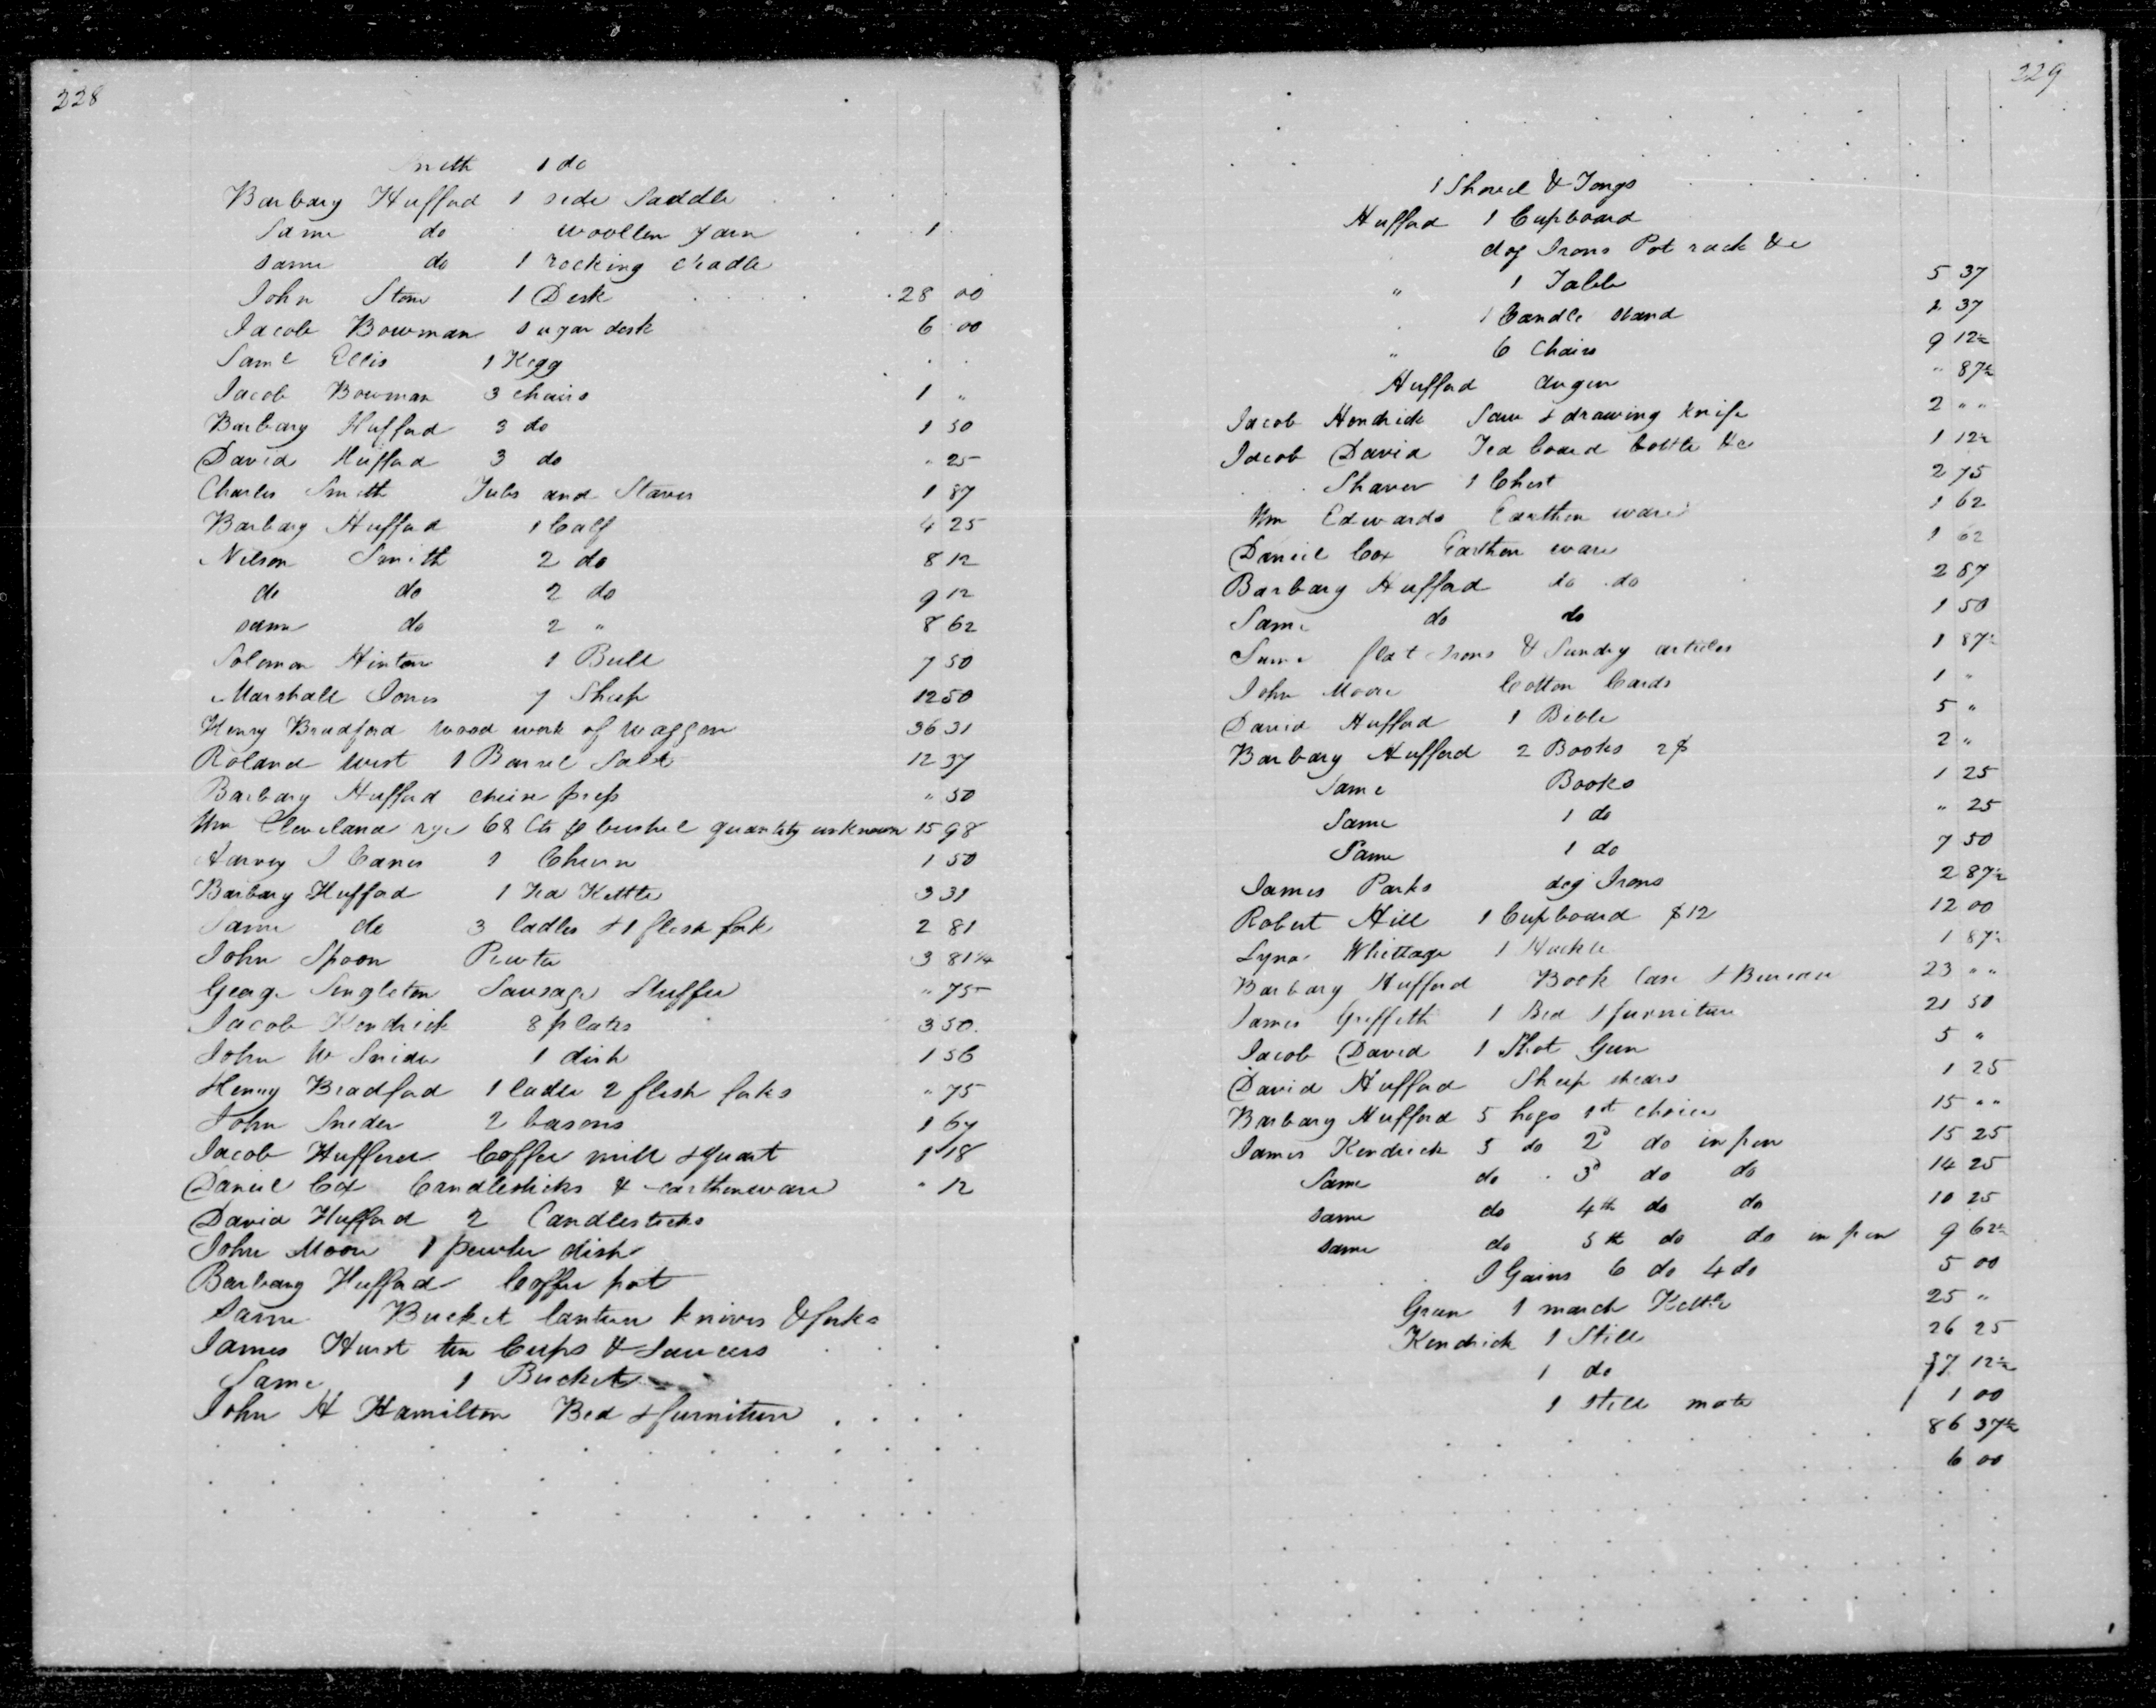 228
Smith 1 do
Barbary Hufford 1 side Saddle
Same do woollen yarn 1
same do 1 rocking cradle
John Stone 1 Desk 28 00
Jacob Bowman sugar desk 6 00
Saml Ellis 1 Kegg
Jacob Bowman 3 chairs 1 "
Barbary Hufford 3 do 1 50
David Hufford 3 do " 25
Charles Smith Tubs and Staves 1 87
Barbary Hufford 1 Calf 4 25
Nelson Smith 2 do 8 12
do do 2 do 9 12
same do 2 " 8 62
Solomon Hinton 1 Bull 7 50
Marshall Jones 7 Sheep 12 50
Henry Bradford wood work of waggon 36 31
Roland West 1 Barrel Salt 12 37
Barbary Hufford cheese press " 50
Wm Cleveland rye 68 Cts p bushel quantity unknown 15 98
Harvey J Canes 1 Churn 1 50
Barbary Hufford 1 Tea Kettle 3 31
Same do 3 ladles & 1 flesh fork 2 81
John Spoon Pewter 3 81 1/4
George Singleton Sausage Stuffer " 75
Jacob Kendrick 8 plates 3 50
John W Snider 1 dish 1 56
Henry Bradford 1 ladle 2 flesh forks " 75
John Sneder 2 basons 1 67
Jacob Hufferer Coffee mill & quart 1 18
Daniel Cox Candlesticks & earthenware " 12
David Hufford 2 Candlesticks
John Moore 1 pewter dish
Barbary Hufford Coffee pot
Same Bucket lantern knives & forks
James Hurst ten Cups & Saucers
Same 1 Bucket
John H Hamilton Bed & furniture
229
1 Shovel & Tongs
Hufford 1 Cupboard
dog Irons Pot rack &c
" 1 Table 5 37
1 Candle stand 2 37
" 6 Chairs 9 12½
Hufford Auger " 87½
Jacob Hendrick Saw & drawing knife 2 " "
Jacob David Tea board bottle &c 1 12½
Shaver 1 Chest 2 75
Wm Edwards Earthen ware 1 62
Daniel Cox Earthen ware 1 62
Barbary Hufford do do 2 87
Same do do 1 50
Same flat Irons & Sundry articles 1 87½
John Moore Cotton Cards 1 "
David Hufford 1 Bible 5 "
Barbary Hufford 2 Books 2$ 2 "
Same Books 1 25
Same 1 do " 25
Same 1 do 7 50
James Parks dog Irons 2 87½
Robert Hill 1 Cupboard $12 12 00
Whittage 1 Hackle 1 87½
Barbary Hufford Book Case & Bureau 23 " "
James Griffeth 1 Bed & furniture 21 50
Jacob David 1 Shot Gun 5 "
David Hufford Sheep shears 1 25
Barbary Hufford 5 hogs 1st choice 15 " "
James Kendrick 5 do 2d do in pen 15 25
Same do 3d do do 14 25
same do 4th do do 10 25
same do 5th do do in pen 9 62½
J Gains 6 do 4 do 5 00
Green 1 march Kettle 25 "
Kendrick 1 Still 26 25
1 do 37 12½
1 still mate 1 00
86 37½
6 00